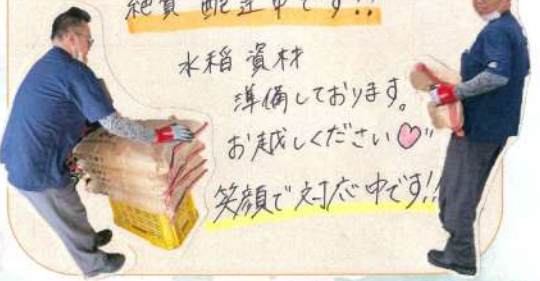 絶賛 配達中です!!
水稲 資材
準備しております。
お越しください♡"
笑顔で対応中です!!